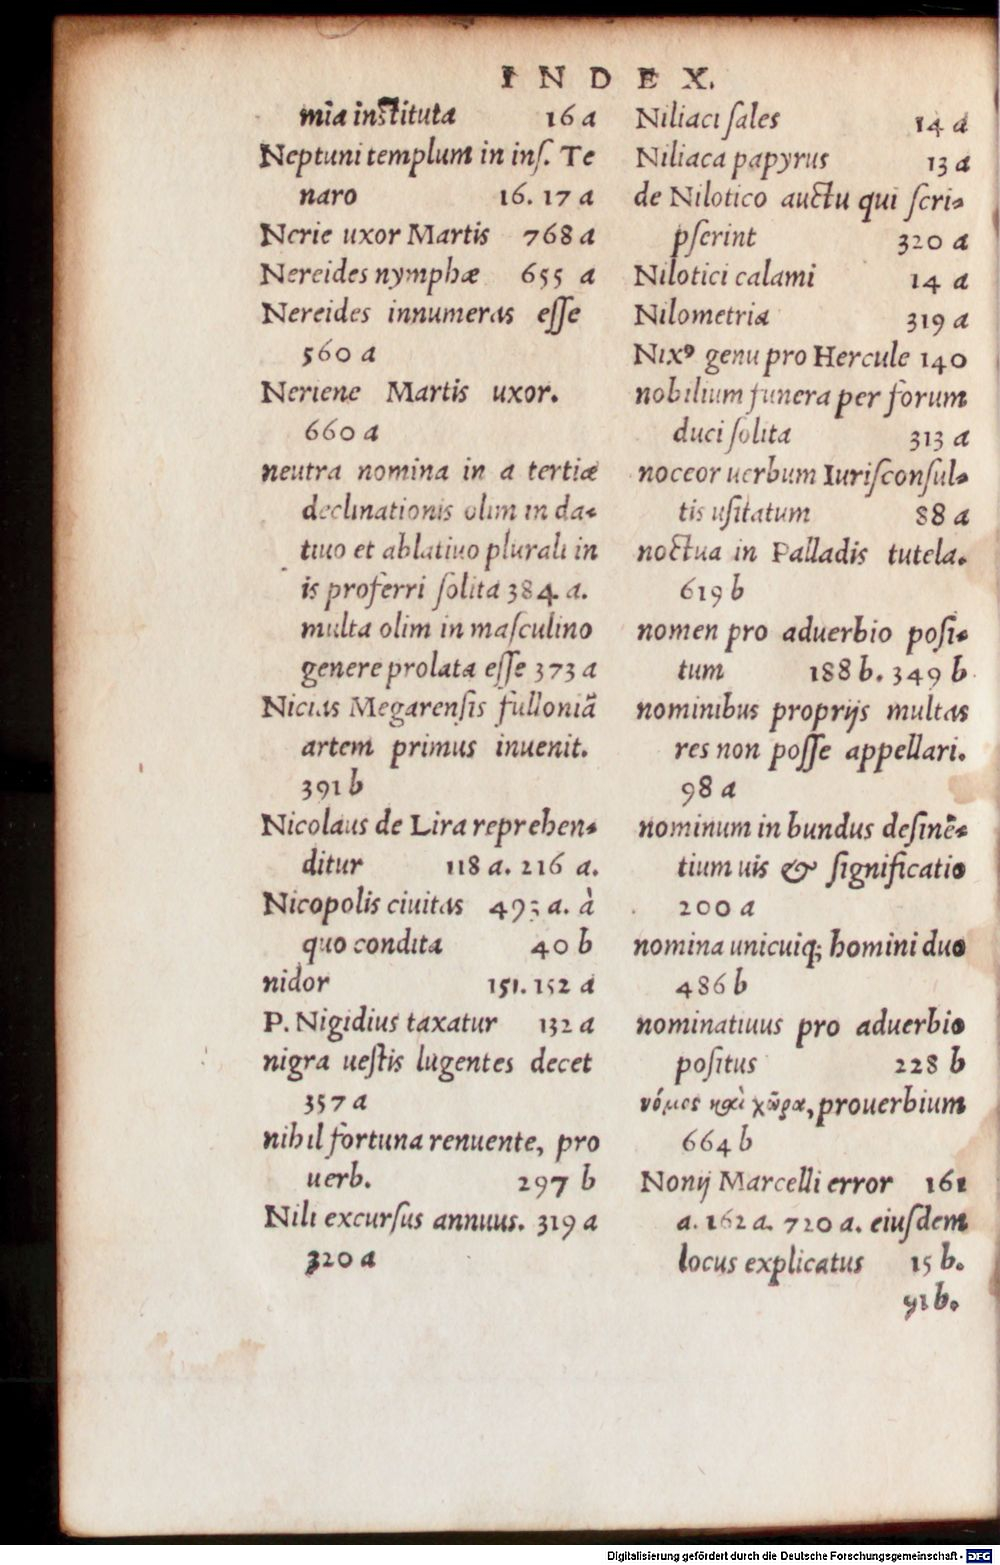 INDEX.
mia instituta 16 a
Neptuni templum in inſ. Te
naro 16. 17 a
Nerie uxor Martis 768 a
Nereides nymphæ 655 a
Nereides innumeras eſſe
560 a
Neriene Martis uxor.
660 a
neutra nomina in a tertiæ
declinationis olim in da-
tiuo et ablatiuo plurali in
is proferri ſolita 384 a.
multa olim in maſculino
genere prolata eſſe 373 a
Nicias Megarenſis fulloniã
artem primus inuenit.
391 b
Nicolaus de Lira reprehen-
ditur 118 a. 216 a.
Nicopolis ciuitas 493 a. à
quo condita 40 b
nidor 151. 152 a
P. Nigidius taxatur 132 a
nigra ueſtis lugentes decet
357 a
nihil fortuna renuente, pro
uerb. 297 b
Nili excurſus annuus. 319 a
320 a
Niliaci ſales 14 a
Niliaca papyrus 13 a
de Nilotico auctu qui ſcri-
pſerint 320 a
Nilotici calami 14 a
Nilometria 319 a
Nixꝰ genu pro Hercule 140
nobilium funera per forum
duci ſolita 313 a
noceor uerbum Iuriſconſul-
tis uſitatum 88 a
noctua in Palladis tutela.
619 b
nomen pro aduerbio poſi-
tum 188 b. 349 b
nominibus proprijs multas
res non poſſe appellari.
98 a
nominum in bundus deſinẽ-
tium uis & ſignificatio
200 a
nomina unicuiq; homini duo
486 b
nominatiuus pro aduerbio
poſitus 228 b
νόμος καὶ χῶρα, prouerbium
664 b
Nonij Marcelli error 161
a. 162 a. 720 a. eiuſdem
locus explicatus 15 b.
91 b.
Digitalisierung gefördert durch die Deutsche Forschungsgemeinschaft - DFG